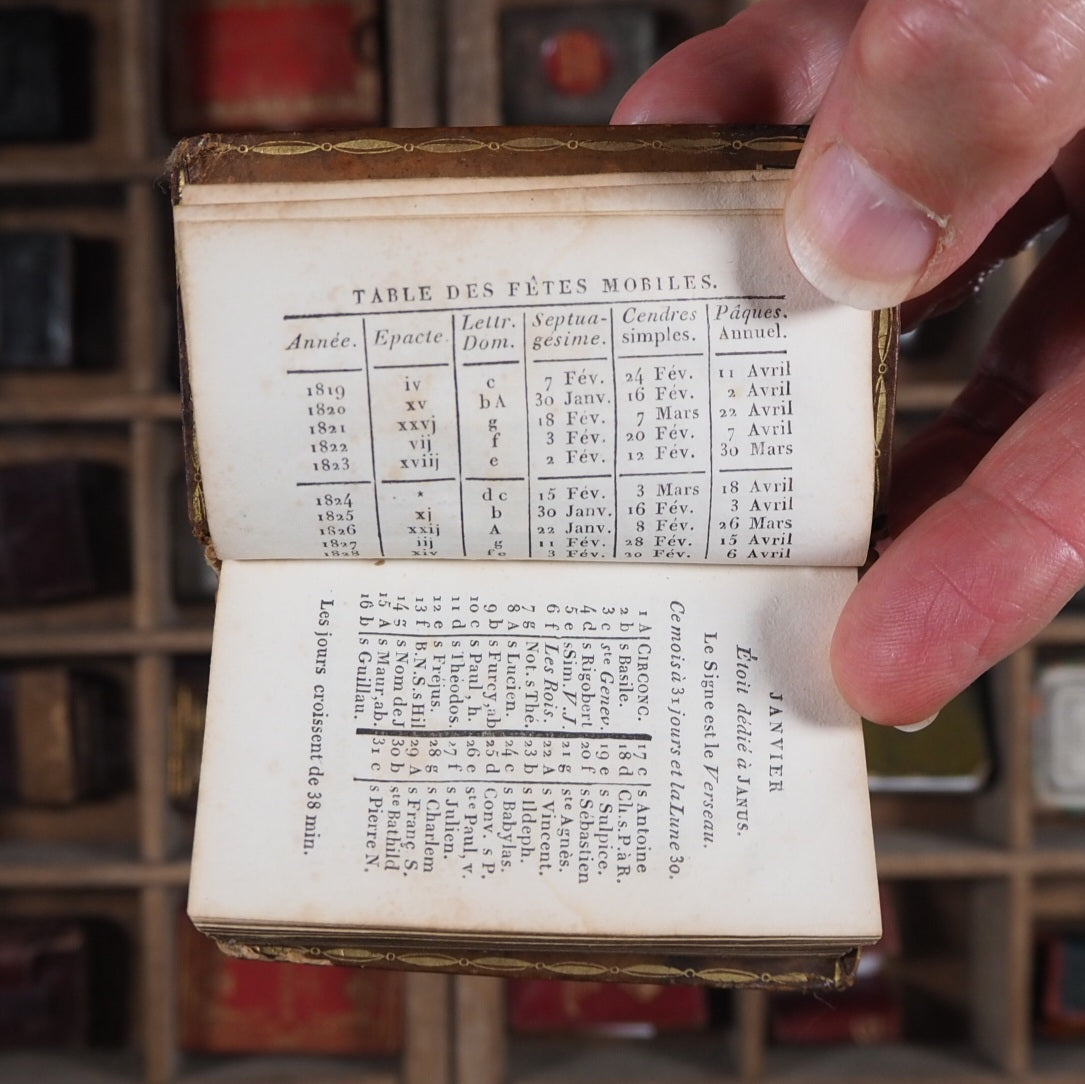 TABLE DES FÊTES MOBILES.
Année. Epacte. Lettr. Dom. Septua-gésime. Cendres simples. Pâques. Annuel.
1819 iv c 7 Fév. 24 Fév. 11 Avril
1820 xv b A 30 Janv. 16 Fév. 2 Avril
1821 xxvj g 18 Fév. 7 Mars 22 Avril
1822 vij f 3 Fév. 20 Fév. 7 Avril
1823 xviij e 2 Fév. 12 Fév. 30 Mars
1824 * d c 15 Fév. 3 Mars 18 Avril
1825 xj b 30 Janv. 16 Fév. 3 Avril
1826 xxij A 22 Janv. 8 Fév. 26 Mars
1827 iij g 11 Fév. 28 Fév. 15 Avril
1828 xiv f e 3 Fév. 20 Fév. 6 Avril
JANVIER
Étoit dédié à JANUS.
Le Signe est le Verseau.
Ce mois à 31 jours et la Lune 30.
1 A CIRCONC. 17 c s Antoine
2 b s Basile. 18 d Ch. s. P. à R.
3 c ste Genev. 19 e s Sulpice.
4 d s Rigobert 20 f s Sébastien
5 e s Sim. V. J. 21 g ste Agnès.
6 f Les Rois. 22 A s Vincent.
7 g Not. s Thé. 23 b s Ildeph.
8 A s Lucien. 24 c s Babylas.
9 b s Furcy, ab. 25 d Conv. s P.
10 c s Paul, h. 26 e ste Paul, v.
11 d s Théodos. 27 f s Julien.
12 e s Fréjus. 28 g s Charlem
13 f B. N. S. s Hil 29 A s Franç. S.
14 g s Nom de J 30 b ste Bathild
15 A s Maur, ab. 31 c s Pierre N.
16 b s Guillau.
Les jours croissent de 38 min.